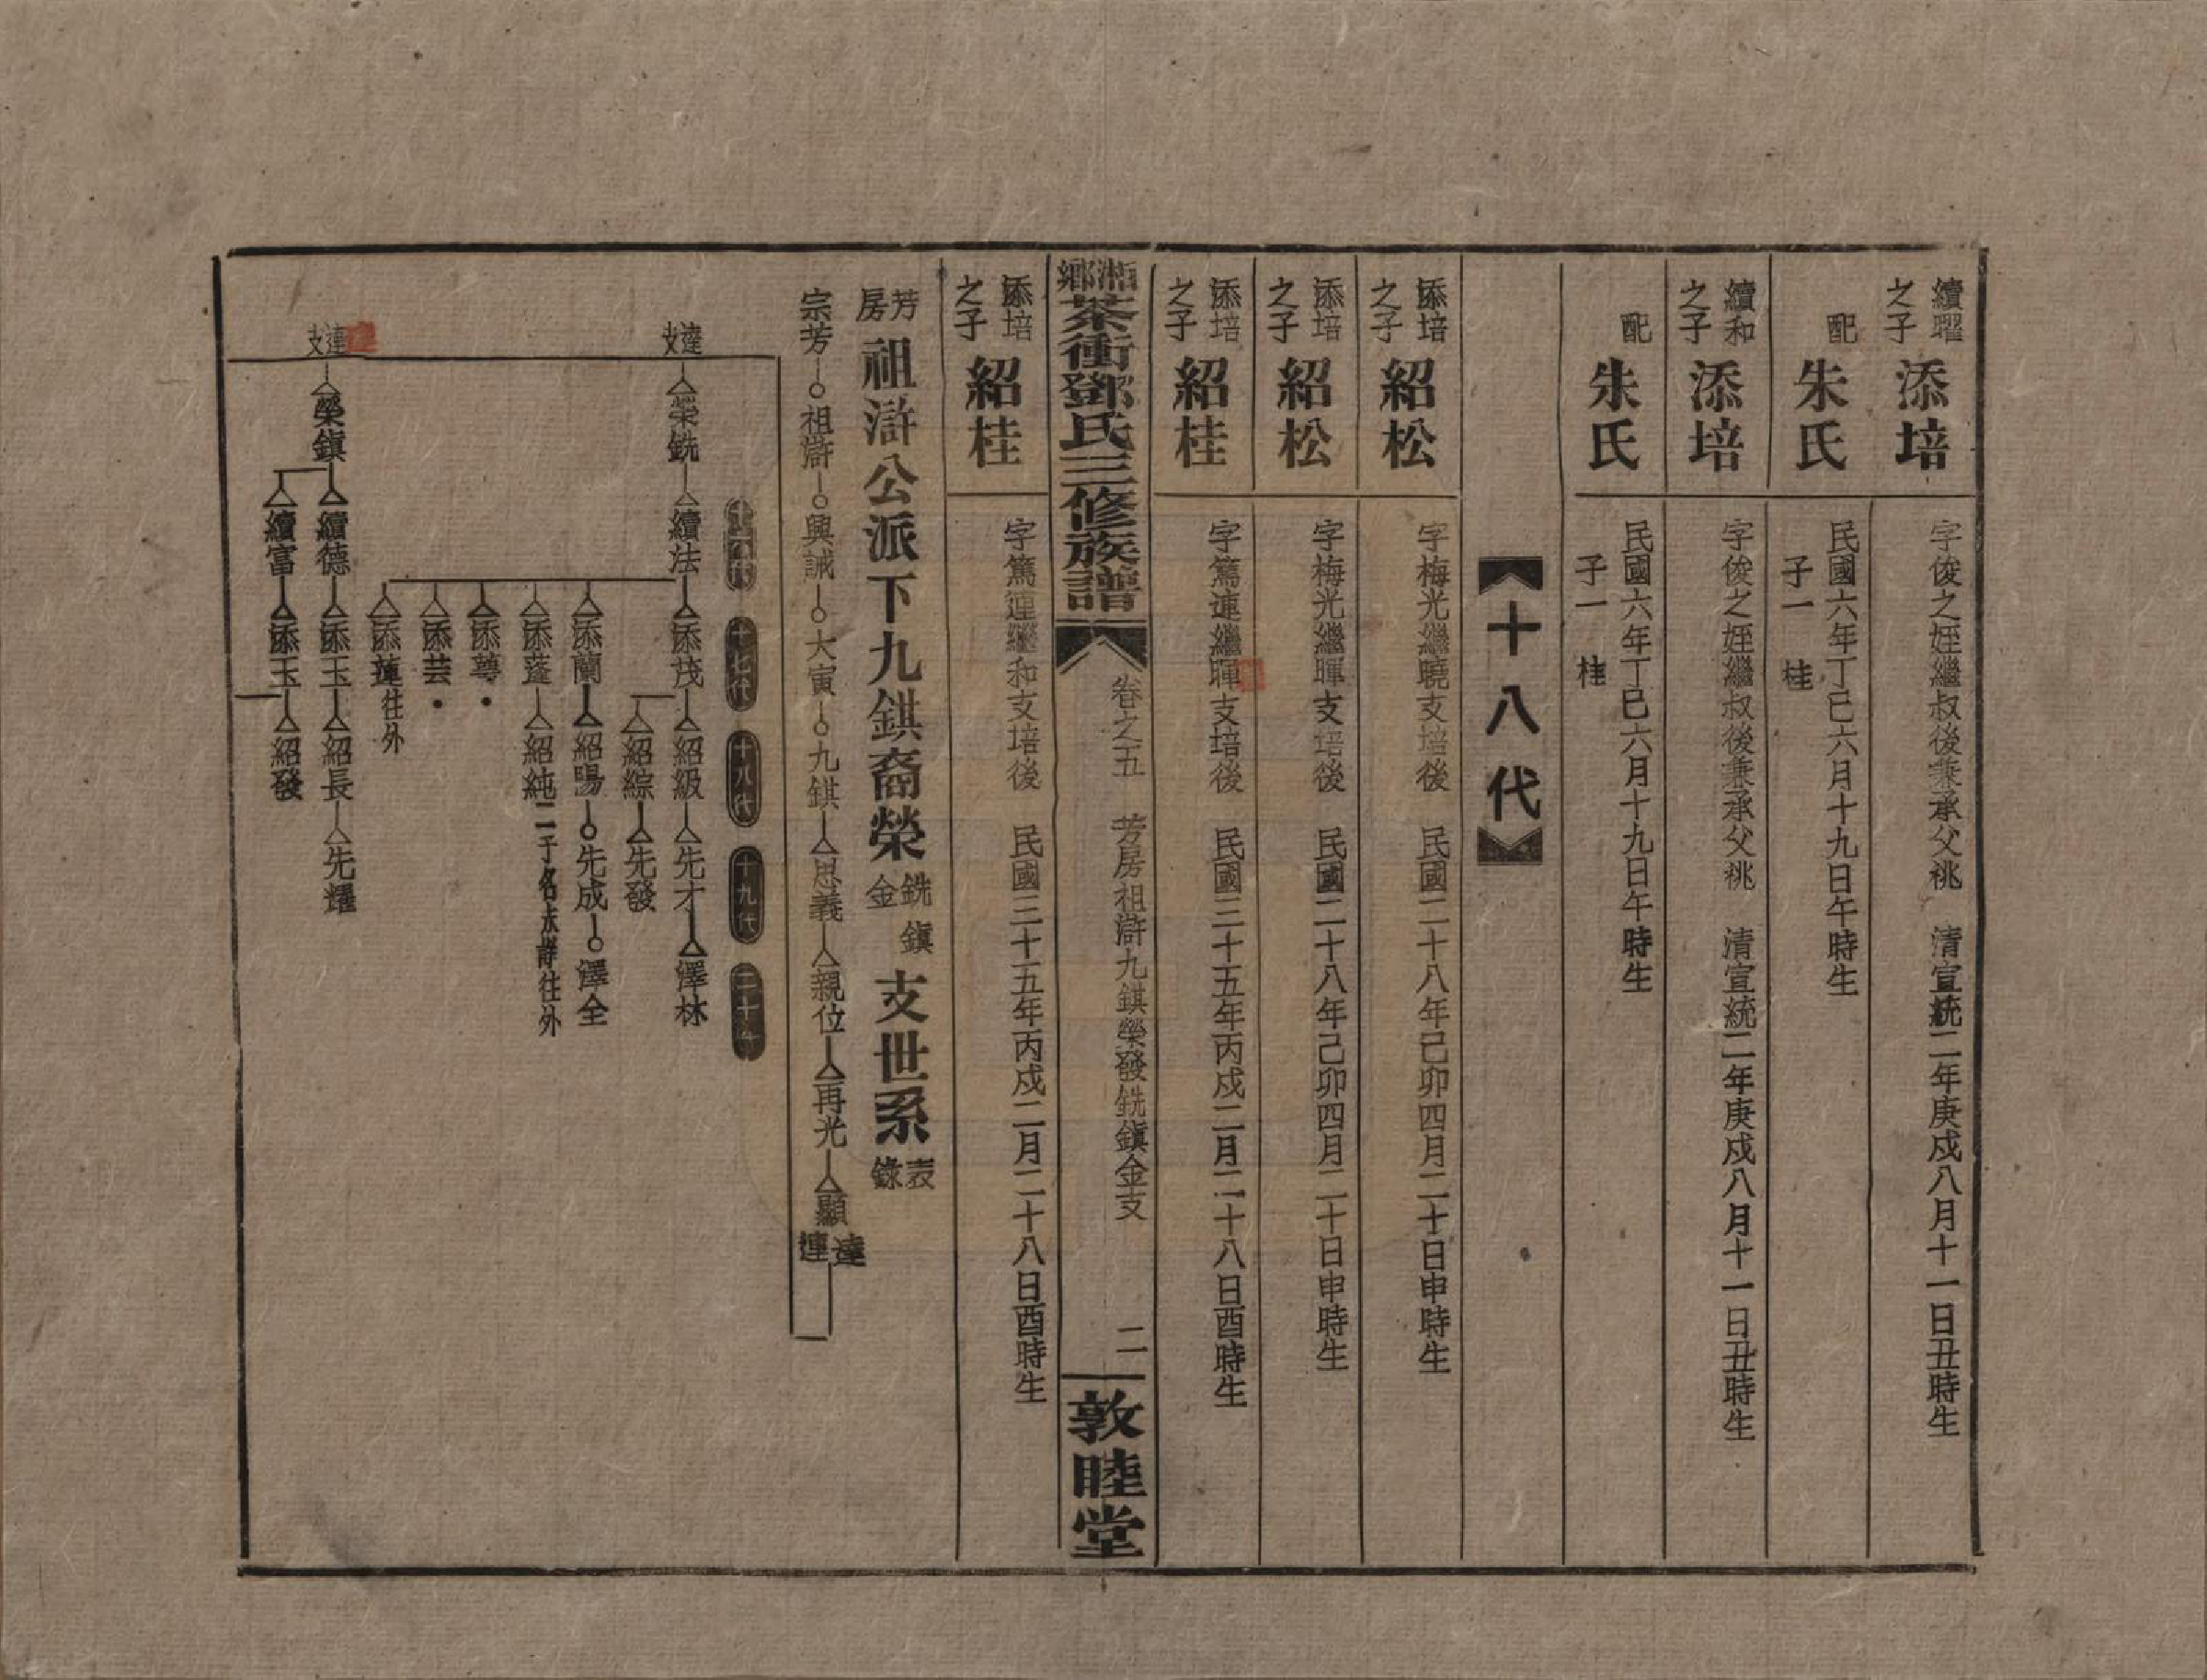 續曜之子 添培 字俊之姪繼叔後兼承父祧 清宣統二年庚戍八月十一日丑時生
配 朱氏 民國六年丁巳六月十九日午時生
子一 桂
續和之子 添培 字俊之姪繼叔後兼承父祧 清宣統二年庚戍八月十一日丑時生
配 朱氏 民國六年丁巳六月十九日午時生
子一 桂
十八代
添培之子 紹松 字梅光繼曉支培後 民國二十八年己卯四月二十日申時生
添培之子 紹松 字梅光繼暉支培後 民國二十八年己卯四月二十日申時生
添培之子 紹桂 字篤連繼暉支培後 民國三十五年丙戍二月二十八日酉時生
湘鄉茶衝鄧氏三修族譜 卷之五 芳房祖滸九錤榮發銑鎮金支 二 敦睦堂
添培之子 紹桂 字篤連繼和支培後 民國三十五年丙戍二月二十八日酉時生
芳房祖滸公派下九錤裔榮銑鎮金支世系表錄
宗芳 祖滸 興誠 大寅 九錤 思義 親位 再光 顯達連
十六代 十七代 十八代 十九代 二十代
達支 榮銑 續法 添茂 紹級 先才 澤林
紹綜 先發
添蘭 紹陽 先成 澤全
添蓬 紹純 二子名未詳往外
添萼
添芸
添蓮 往外
連支 榮鎮 續德 添玉 紹長 先耀
續富 添玉 紹發